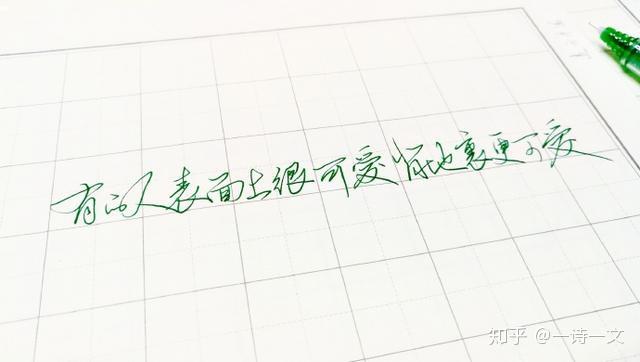 有的人表面上很可爱背地裏更可爱
知乎 @一诗一文